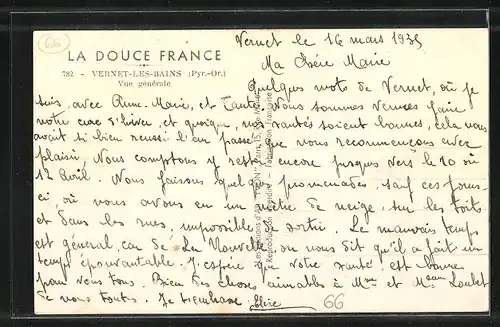 Vernet le 16 mars 1935
LA DOUCE FRANCE
782 - VERNET-LES-BAINS (Pyr.-Or.)
Vue générale
Ma Chère Marie
Quelques mots de Vernet, où je
suis, avec Anne-Marie, et Tante. Nous sommes venues faire
notre cure d'hiver, et quoique, nos santés soient bonnes, cela nous
avait si bien reussi l'an passé que nous recommençons avec
plaisir. Nous comptons y rester encore jusques vers le 10 ou
12 Avril. Nous faisons quelques promenades, sauf ces jours-
ci, où nous avons eu un mètre de neige, sur les toits
et dans les rues, impossible de sortir. Le mauvais temps
est général, car de La Nouvelle on nous dit qu'il a fait un
temps épouvantable. J'espère que votre santé est bonne
pour vous tous. Bien des choses aimables à Mme et Mr Loulet
de nous toutes. Je t'embrasse
66
Reproduction Interdite - Fabrication Française